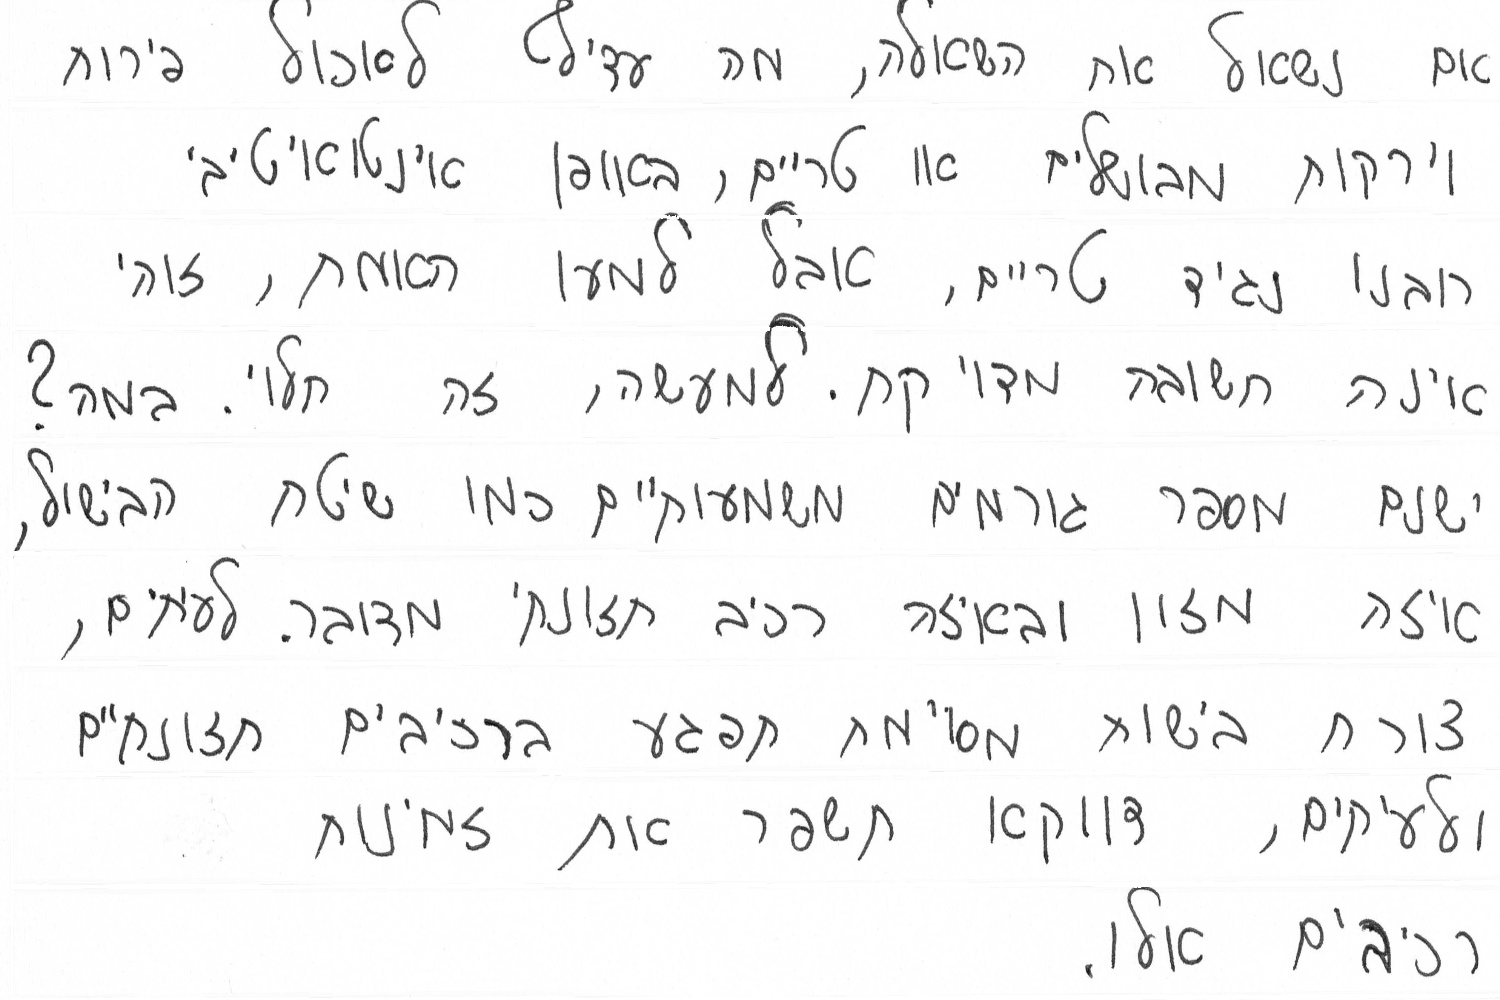 אם נשאול את השאולה, מה עדילף לאכול פירות
וירקות מבושלים או טריים, באופן אינטואיטיבי
רובנו נגיד טריים, אבל למען האמת, זוהי
אינה תשובה מדויקת. למעשה, זה תלוי. במה?
ישנם מספר גורמים משמעותיים כמו שיטת הבישול,
איזה מזון ובאיזה רכיב תזונתי מדובר. לעיתים,
צורת בישות מסוימת תפגע ברכיבים תזונתיים
ולעיקים, דווקא תשפר את זמינות
רכיבים אלו.